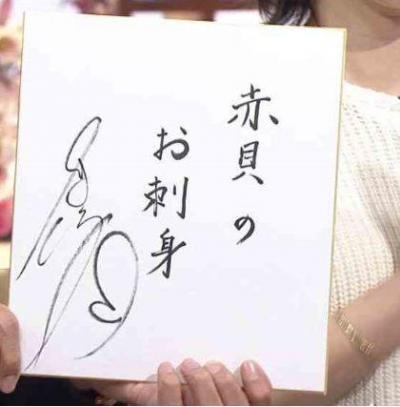 赤貝の
お刺身